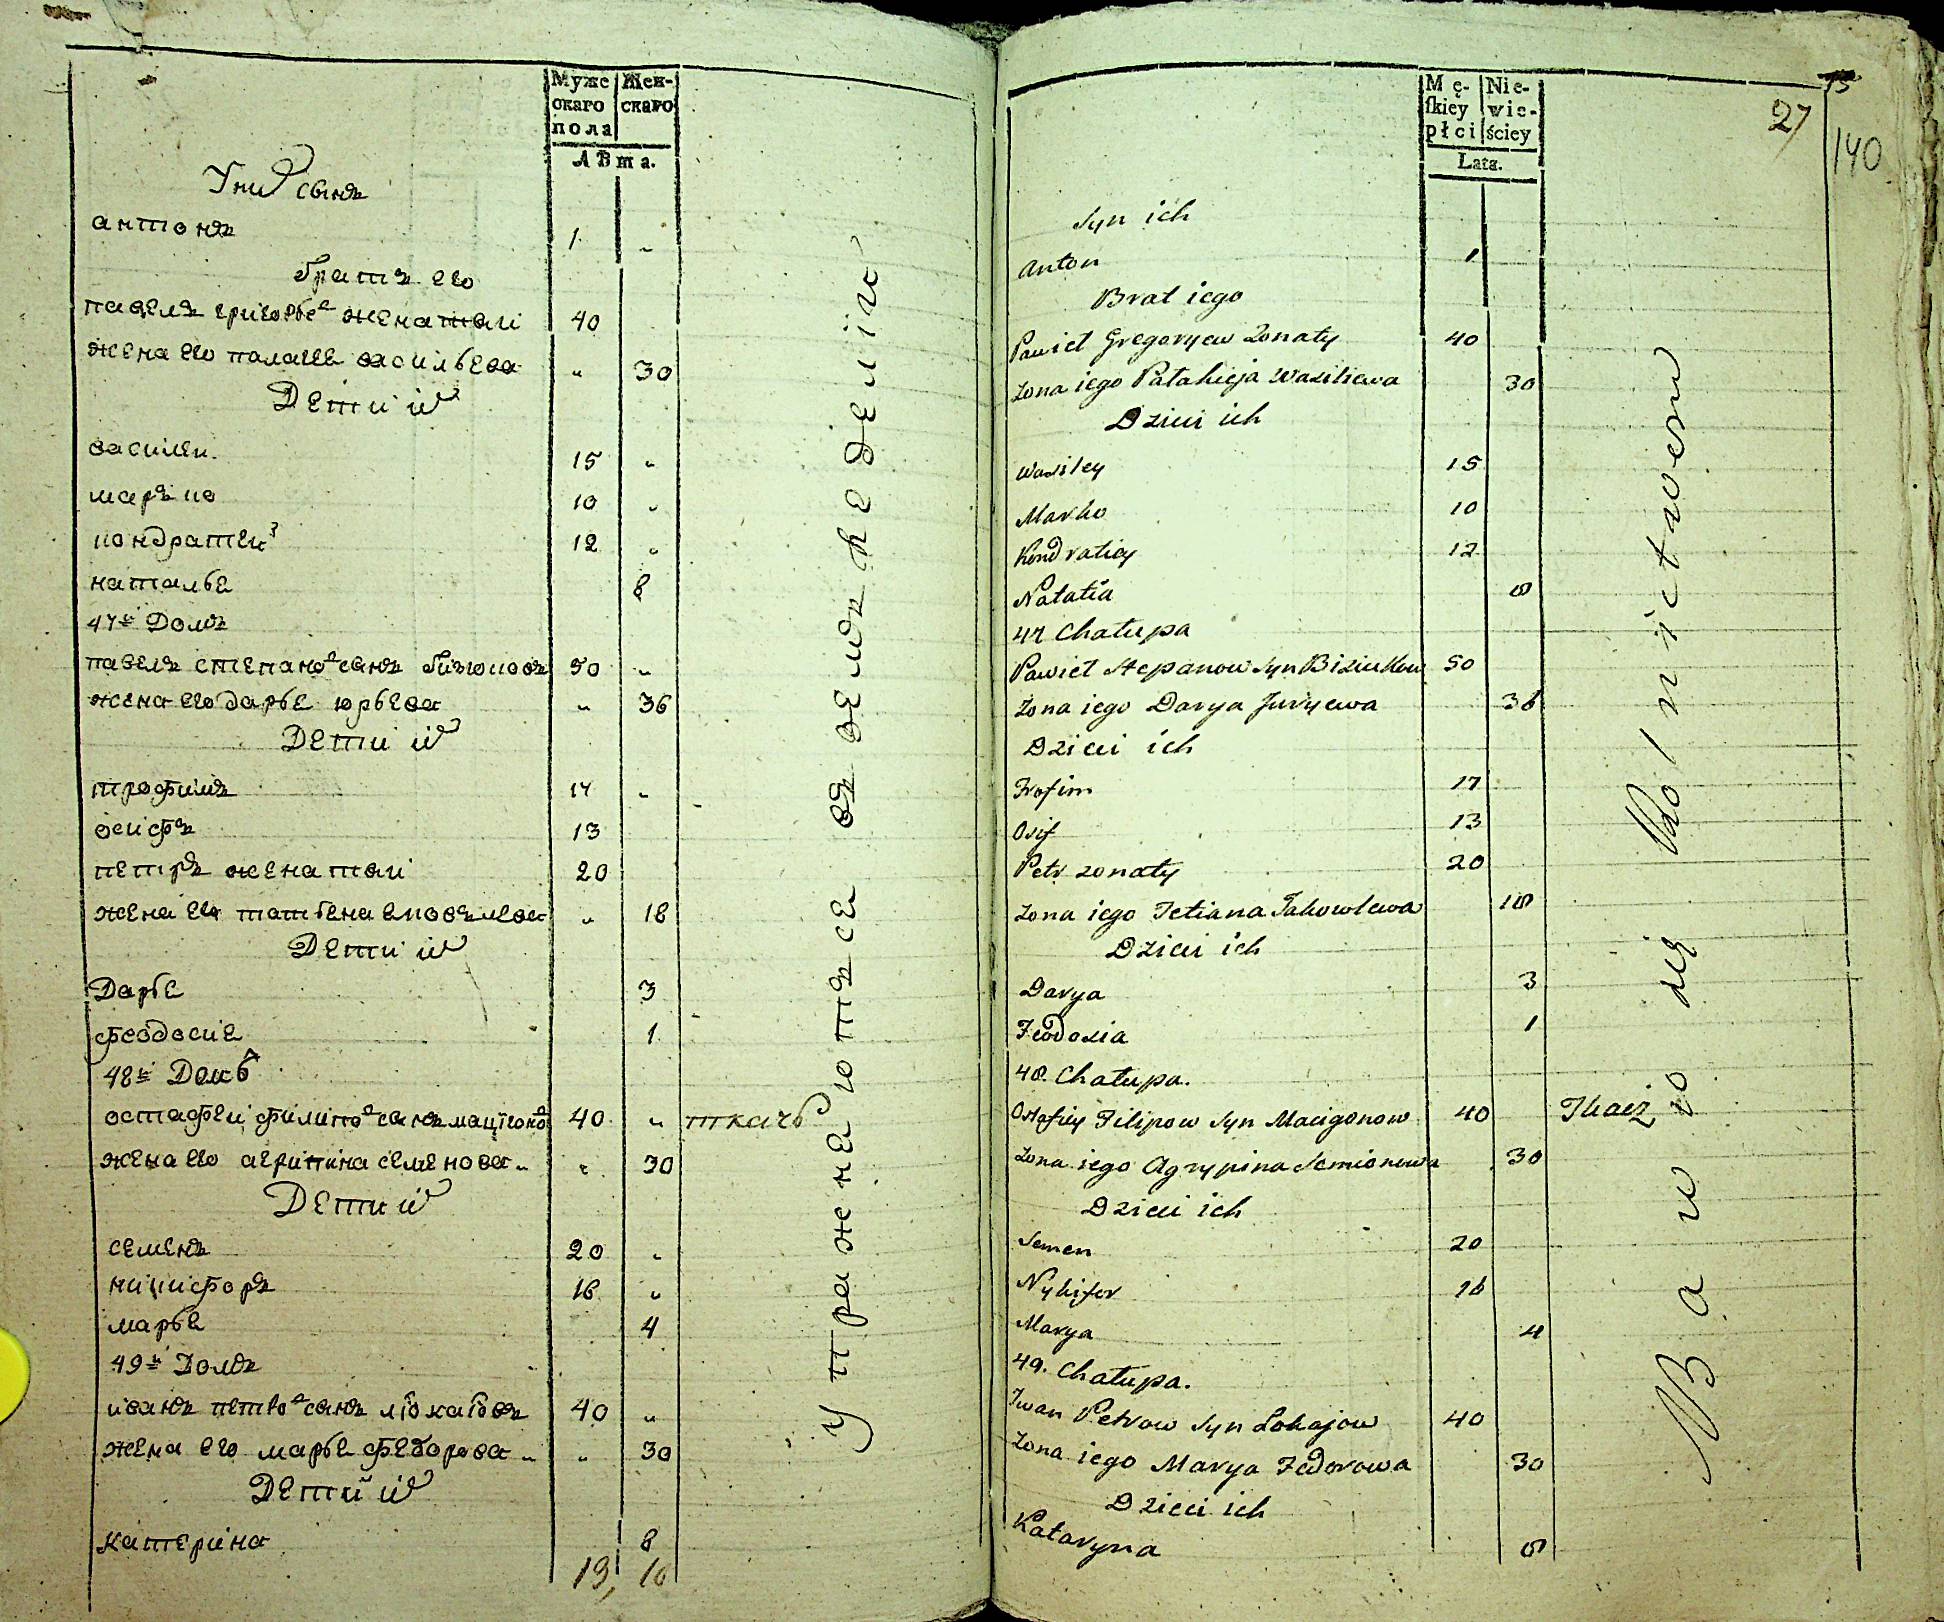 Муже скаго пола
Жен- скаго
Лѣта.
У ни сынъ
антонъ 1 "
братъ его
павелъ григорьев женатыи 40
жена его палаге васильева " 30
Дети их
василеи 15 "
маръко 10 "
кондратеи 12 "
наталье 8
47й Домъ
павелъ степанов сынъ бизюковъ 50 "
жена его дарье юрьева " 36
Дети их
трофимъ 17 "
осифъ 13
петръ женатыи 20
жена его татьена яковълева " 18
Дети их
Дарье 3
феодосие 1
48й Домъ
остафеи филипов сынъ мацігонов 40 " ткачь
жена его агрипина семенова " 30
Дети их
семенъ 20 "
никифоръ 16 "
марье 4
49й Домъ
иванъ петров сынъ локаіовъ 40 "
жена его марье федорова " 30
Дети их
катерина 8
19, 16
Упражнеютъсе въ земъледеліи
Mę- ſkiey płci
Nie- wie- ściey
Lata.
27
140
Syn ich
Anton 1
Brat iego
Pawieł Gregoryew żonaty 40
Żona iego Pałahieja Wasiliewa 30
Dzieci ich
Wasiley 15
Marko 10
Kondratiey 12
Natalia 8
47 Chałupa
Pawieł Stepanow Syn Biziukow 50
Żona iego Darya Juryewa 36
Dzieci ich
Trofim 17
Osif 13
Petr żonaty 20
Żona iego Tetiana Jakowlewa 18
Dzieci ich
Darya 3
Feodosia 1
48. Chałupa.
Ostafiey Filipow Syn Macigonow 40 Tkacz
Żona iego Agrypina Semionowa 30
Dzieci ich
Semen 20
Nykifor 16
Marya 4
49. Chałupa.
Iwan Petrow Syn Łokajow 40
Żona iego Marya Fedorowa 30
Dzieci ich
Kataryna 8
Bawio się Rolnictwem